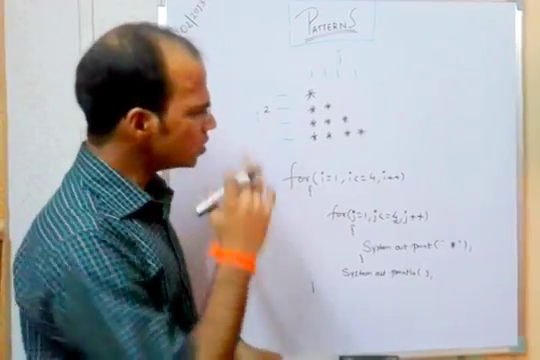 02/2013
PATTERNS
j
1 1 1 1
*
i 2 * *
* * *
* * * *
for(i=1, i<=4, i++)
{
for(j=1, j<=i, j++)
{
System.out.print("*");
}
System.out.println();
}